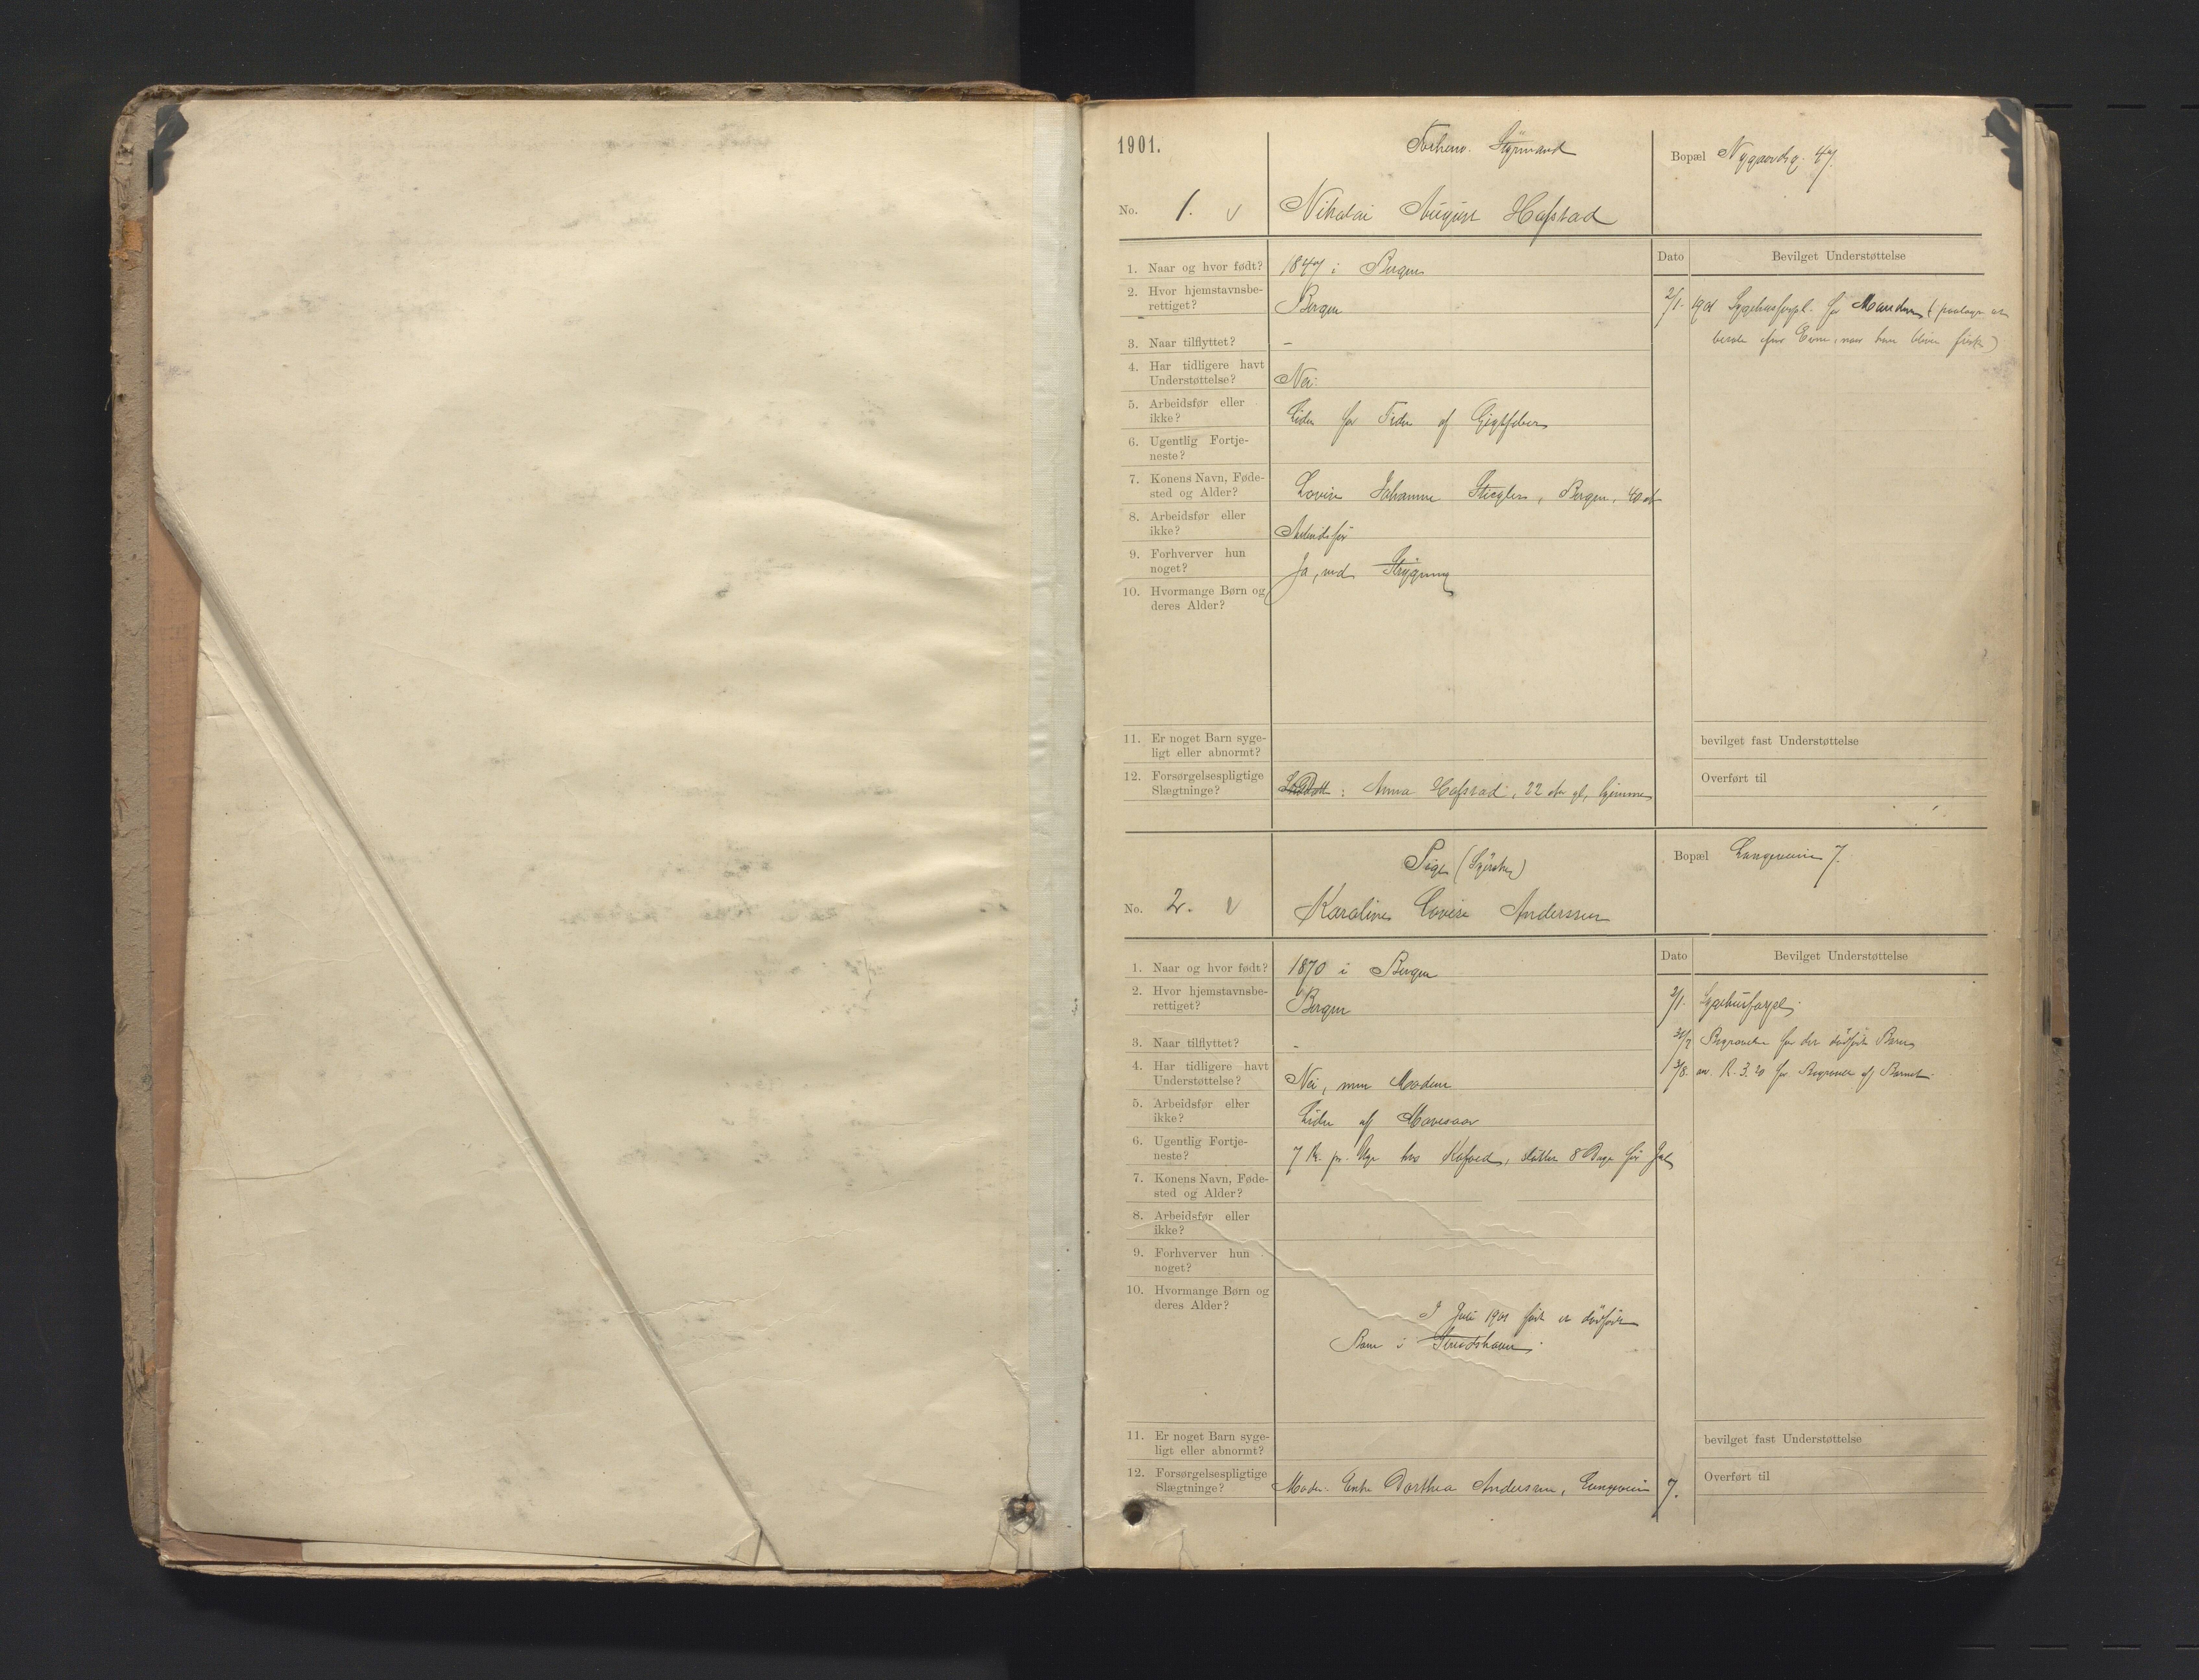 1901.
Forhenv. Styrmand
Bopæl Nygaardsg. 47.
No. 1. v Nikolai August Hafstad
1. Naar og hvor født? 1847 i Bergen
2. Hvor hjemstavnsbe-
rettiget? Bergen
3. Naar tilflyttet? –
4. Har tidligere havt
Understøttelse? Nei.
5. Arbeidsfør eller
ikke? Lider for Tiden af Gigtfeber
6. Ugentlig Fortje-
neste?
7. Konens Navn, Føde-
sted og Alder? Lovise Johanne Stiegler, Bergen, 40 at
8. Arbeidsfør eller
ikke? Arbeidsfør
9. Forhverver hun
noget? Ja, ved Strygning
10. Hvormange Børn og
deres Alder?
11. Er noget Barn syge-
ligt eller abnormt?
12. Forsørgelsespligtige
Slægtninge? : Anna Hafstad, 22 aar gl, hjemme
Dato Bevilget Understøttelse
2/1. 1901 Sygehusforpl. for Manden (paalagt at
betale efter Evne, naar han bliver frisk)
bevilget fast Understøttelse
Overført til
Pige (Syerske)
Bopæl Langeveien 7.
No. 2. v Karoline Lovise Anderssen
1. Naar og hvor født? 1870 i Bergen
2. Hvor hjemstavnsbe-
rettiget? Bergen
3. Naar tilflyttet? –
4. Har tidligere havt
Understøttelse? Nei, men Moderen
5. Arbeidsfør eller
ikke? Lider af Mavesaar
6. Ugentlig Fortje-
neste? 7 Kr. pr. Uge hos Kofoed, sluttet 8 Dage før Jul
7. Konens Navn, Føde-
sted og Alder?
8. Arbeidsfør eller
ikke?
9. Forhverver hun
noget?
10. Hvormange Børn og
deres Alder?
I Juli 1901 født et dødfødt
Barn i
11. Er noget Barn syge-
ligt eller abnormt?
12. Forsørgelsespligtige
Slægtninge? Moder: Enke Dorthea Andersen, Langeveien 7.
Dato Bevilget Understøttelse
2/1. Sygehusforpl.
31/7 Begravelse for det dødfødte Barn
3/8. an. K. 3.20 for Begravelse af Barnet.
bevilget fast Understøttelse
Overført til